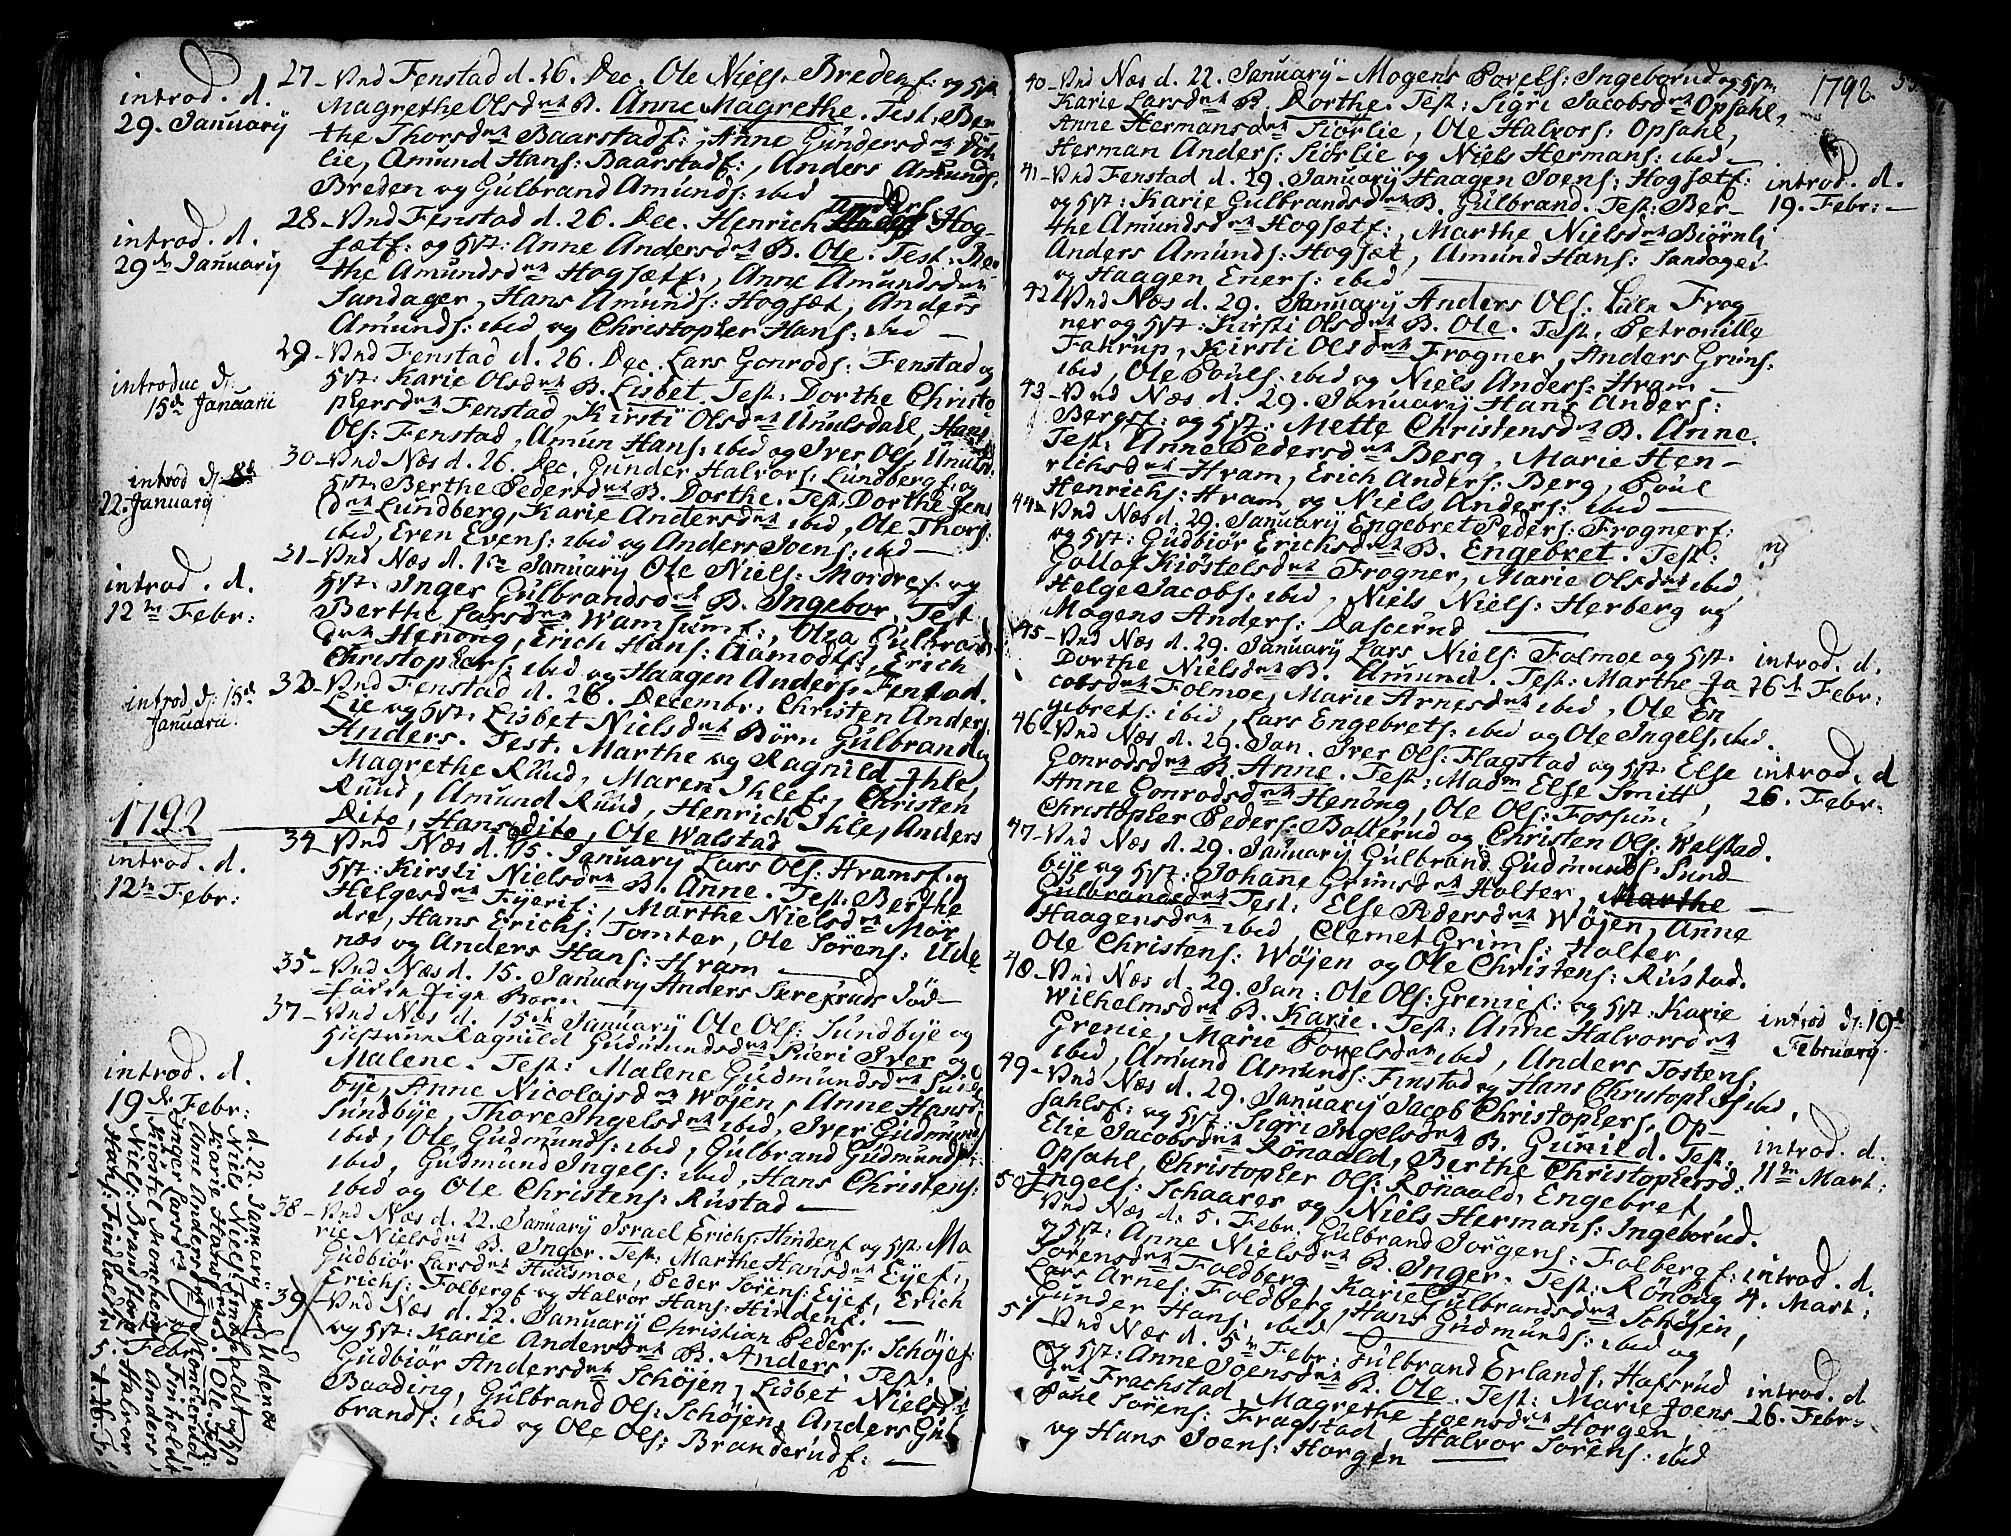 introd. d.
29. Januarÿ
27 - Und Fenstad d. 26. Dec. Ole Niels. Bredenf: og Hst
Magrethe Olsdtr B. Anne Magrethe. Test: Ber
the Thorsdtr Baarstadf: Anne Gundersdtr
lie, Amund Hans: Baarstadf:, Anders Amunds:
Breden og Gulbrand Amunds: ibid
introd. d.
29de Januarÿ
28 - Und Fenstad d. 26. Dec. Henrich Anders Hog-
sætf: og Hst: Anne Andersdtr B. Ole. Test: Be-
the Amundsdtr Hogsætf:, Anne Amundsdtr
Sandager, Hans Amunds: Hogsæt, Anders
Amunds: ibid og Christopher Hans: ibid
introduc d:
15de Januarii
29 - Und Fenstad d. 26. Dec. Lars Gonrods: Fenstad og
Hst: Karie Olsdtr B. Lisbet. Test: Dorthe Christo
phersdtr Fenstad, Kirsti Olsdtr Unulsdall, Hans
Ols: Fenstad, Amun Hans: ibid og Iver Ols:
introd d:
22. Januarÿ
30 - Und Næs d. 26. Dec. Gunder Halvors: Lundbergf: og
Hst: Berthe Pedersdtr B. Dorthe. Test: Dorthe Jens
dtr Lundberg, Karie Andersdtr ibid, Ole Thors:
ibid, Even Evens: ibid og Anders Joens: ibid
introd. d.
12te Febr:
31 - Und Næs d. 1te Januarÿ Ole Niels: Mordref. og
Hst. Inger Gulbrandsdtr B. Ingebor, Test
Berthe Larsdtr Wamsumf:, Olea Gulbrands
dtr Henong, Erich Hans: Aamodtf:, Erich
Christophers: ibid og Haagen Anders: Fenstad.
introd d: 15de
Januarii
32 - Und Fenstad d. 26. Decembr: Christen Anders:
Lie og Hst: Lisbet Nielsdtr Børn Gulbrand og
Anders. Test. Marthe og Ragnild Ihle,
Magrethe Ruud, Maren Ihlef, Christen
Ruud, Amund Ruud, Henrich Ihle, Anders
Dito, Hans dito, Ole Walstad
1792
introd. d.
12te Febr:
34 - Und Næs d. 15. Januarÿ Lars Ols: Hramsf. og
Hst: Kirsti Nielsdtr B. Anne. Test: Berthe
Helgesdtr Fyerif:, Marthe Nielsdtr Mor
dre, Hans Erichs: Tomter, Ole Sørens: Ude
næs og Anders Hans: Hram
35 - Und Næs d. 15. Januarÿ Anders Skrexruds Død-
fødde Pige Barn
introd. d.
19de Febr:
37 - Und Næs d. 15de Januarÿ Ole Ols: Sundbye og
Hustrue Ragnild Gudmundsdtr Iver og
Malene. Test: Malene Gudmundsdtr Sund
bye, Anne Nicolajsdtr Wøjen, Anne Hans
Sundbye, Thore Ingelsdtr ibid, Iver Gudmunds
ibid, Ole Gudmunds: ibid, Gulbrand Gudmunds:
ibid, Gudmund Ingels: ibid, Hans Christens:
ibid og Ole Christens: Rustad
38 - Und Næs d. 22. Januarÿ Israel Erichs: Hindenf og Hst: Ma
rie Nielsdtr B. Inger. Test: Marthe Hansdtr Eyef:,
Gudbiør Larsdtr Huusmoe, Peder Sørens: Eyef, Erich
Erichs: Folbergf og Halvor Hans: Hindenf.
39 - Und Næs d. 22. Januarÿ Christian Peders: Schøjef
og Hst: Karie Andersdtr B. Anders. Test:
Gudbiør Andersdtr Schøjen, Lisbet Nielsdtr
Baading, Gulbrand Ols: Schøjen, Anders Gul
brands: ibid og Ole Ols: Branderudf:
d. 22 Januarÿ Udenæs
Niels Niels: Findhaldt og Hst
Karie Hansdtr B. Ole. Test:
Anne Andersdtr Monchrud,
Inger Larsdtr Finholdt
Kiøstel Monchrud, Anders
Niels: Brandstorp, Halvor
Hans: Findhaldt
1792.
40 - Und Næs d. 22. Januarÿ - Mogens Povels: Ingeborud og Hst:
Karie Larsdtr B. Dorthe. Test: Sigri Jacobsdtr Opsahl,
Anne Hermansdtr Siørlie, Ole Halvors: Opsahl,
Herman Anders: Siørlie og Niels Hermans: ibid
41 - Und Fenstad d. 29. Januarÿ Haagen Joens: Hogsætf:
og Hst: Karie Gulbrandsdtr B. Gulbrand. Test: Ber-
the Amundsdtr Hogsætf:, Marthe Nielsdtr Biørnli
Anders Amunds: Hogsæt, Amund Hans: Sandager
og Haagen Eners: ibid
introd. d.
19. Febr:
42 - Und Næs d. 29. Januarÿ Anders Ols: Lille Frog
ner og Hst: Kirsti Olsdtr B. Ole. Test: Petronille
Fahrup, Kirsti Olsdtr Frogner, Anders Grims:
ibid, Ole Pouls: ibid og Niels Anders: Hram
43 - Und Næs d. 29. Januarÿ Hans Anders:
Bergsf: og Hst: Mette Christensdtr B. Anne.
Test: Anne Pedersdtr Berg, Marie Hen-
richsdtr Hram, Erich Anders: Berg, Poul
Henrichs: Hram og Niels Anders: ibid
44 - Und Næs d. 29. Januarÿ Engebret Peders: Frognerf:
og Hst: Gudbiør Ericksdtr B. Engebret. Test:
Gollof Kiøstelsdtr Frogner, Marie Olsdtr ibid
Helge Jacobs: ibid, Niels Niels: Herberg og
Mogens Anders: Daserud
45 - Und Næs d. 29. Januarÿ Lars Niels: Folmoe og Hst.
Dorthe Nielsdtr B. Amund. Test: Marthe Ja
cobsdtr Folmoe, Marie Arnesdtr ibid, Ole En
gebrets: ibid, Lars Engebrets: ibid og Ole Ingels: ibid.
introd. d.
26de Febr:
46 - Und Næs d. 29. Jan. Iver Ols: Flagstad og Hst. Else
Gonrodsdtr B. Anne. Test: Madm Else Smitt,
Anne Conrodsdtr Henong, Ole Ols: Fossum,
Christopher Peders: Bollerud og Christen Ols: Walstad.
introd. d
26. Febr:
47 - Und Næs d. 29. Januarÿ Gulbrand Gudmunds: Sund-
bye og Hst: Johane Grimsdtr Holter, Marthe
Gulbrandsdtr Test: Else Pedersdtr Wøjen, Anne
Haagensdtr ibid, Clemet Grims: Holter,
Ole Christens: Wøjen og Ole Christens: Rustad.
48 - Und Næs d. 29. Jan: Ole Ols: Grenief: og Hst: Karie
Wilhelmsdtr B. Karie. Test: Anne Halvorsdtr
Grenie, Marie Povelsdtr ibid, Anders Tostens:
ibid, Amund Amunds: Finstad og Hans Christophers ibid,
introd d: 19de
Februarÿ
49 - Und Næs d. 29. Januarÿ Jacob Christophers: Op-
sahlsf: og Hst: Sigri Ingelsdtr B. Gunild. Test:
Elie Jacobsdtr Rønaald, Berthe Christophersd:
Opsahl, Christopher Ols: Rønaald, Engebret
Ingels: Schaarer og Niels Hermans: Ingeborud.
introd. d.
11te Mart:
50 - Und Næs d. 5. Febr: Gulbrand Jørgens: Folbergf:
og Hst: Anne Nielsdtr B. Inger. Test: Rønoug
Sørensdtr Foldberg, Karie Gulbrandsdtr Schøjen,
Lars Arnes: Foldberg, Hans Gudmunds: ibid og
Gunder Hans: ibid
introd. d.
4. Mart:
51 - Und Næs d. 5te Febr: Gulbrand Erlands: Hafsrud
og Hst: Anne Joensdtr B. Ole. Test: Marie Joens
dtr Frachstad, Magrethe Joensdtr Horgen,
Pahl Sørens: Fragstad, Halvor Sørens: ibid
og Hans Joens: Horgen
introd. d
26. Febr: